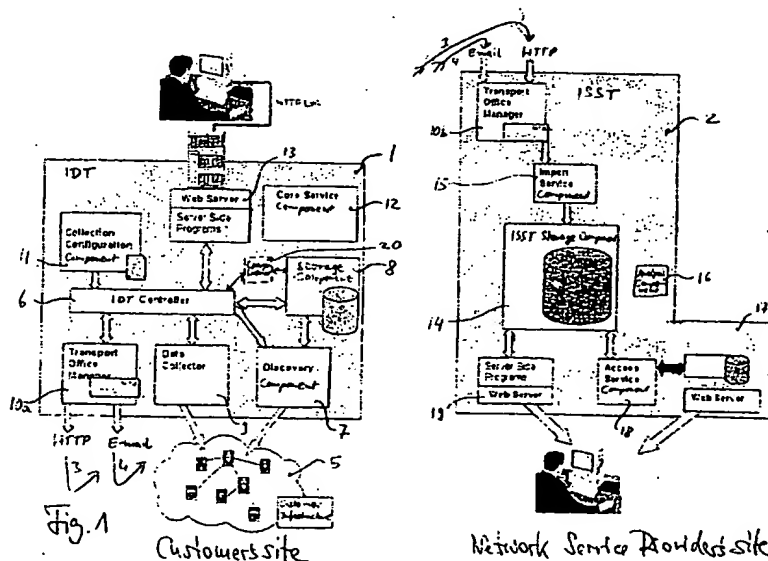 3
4
Email
HTTP
IDT
1
13
Web Server
Server Side
Programs
Core Service
Component
12
Collection
Configuration
Component
11
20
Storage
Component
8
6
IDT Controller
Transport
Office
Manager
10a
Data
Collector
9
Discovery
Component
7
HTTP
E-mail
3
4
5
Customer
Infrastructure
Fig. 1
Customer's site
ISST
2
Transport
Office
Manager
10b
15
Import
Service
Component
ISST Storage Component
14
16
17
Server Side
Programs
Web Server
19
Access
Service
Component
18
Web Server
Network Service Providers site